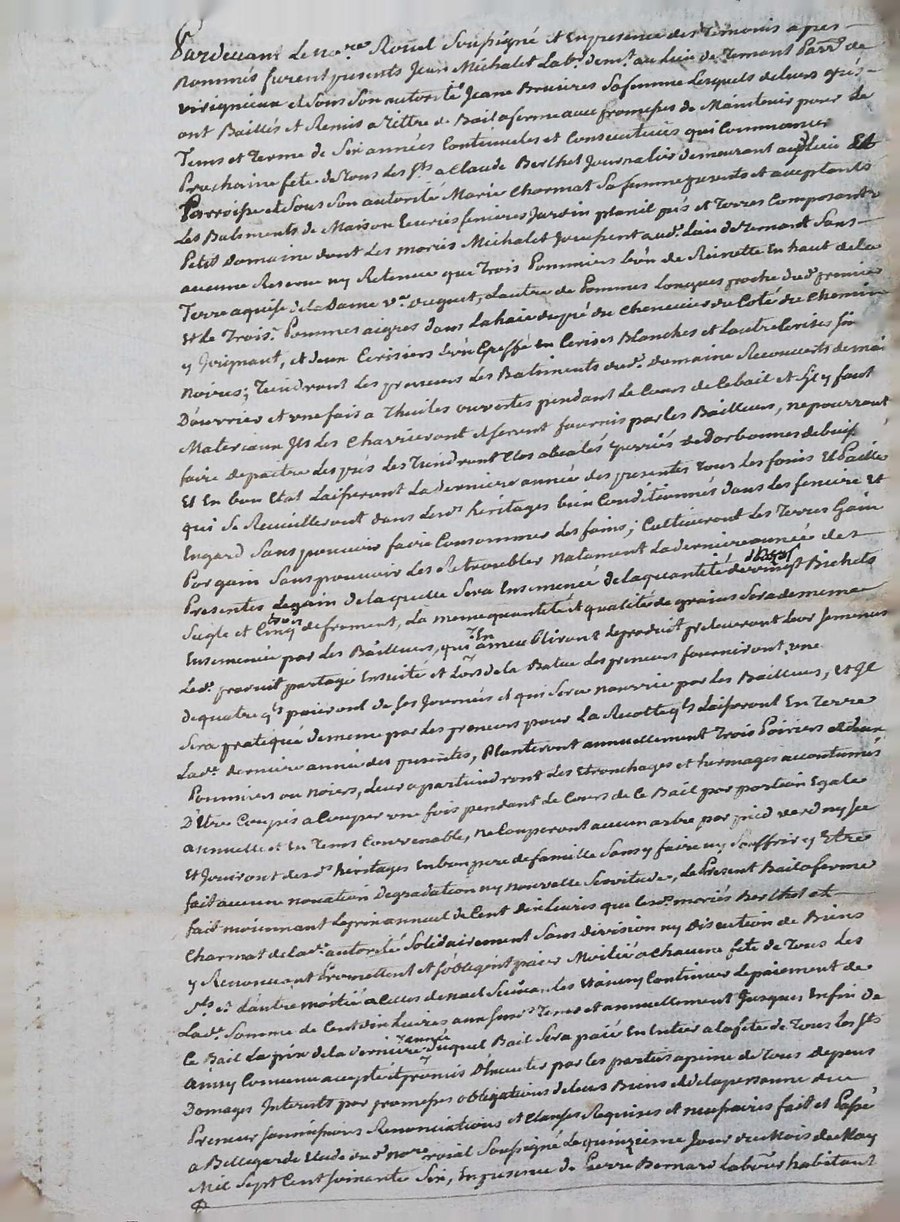 Pardevant Le no.re Roüel Soussigné et En presence des Temoins apres
nommés furent presents Jean Michalet Lab.r dem.t au Lieu de Ternant Parr.e de
virigneux et sous Son autorité Jeane Bruieres Sa femme Lesquels de leurs grés
ont Baillés et Remis a Tittre de Bail a ferme aux promesses de Maintenir pour Le
Tems et Terme de Six années Continuelles et Consecutives qui Commance
Prochaine fete de Tous Les Sts a Claude Berthet Journalier demeurant audit lieu Et
Parroisse et Sous Son autorité Marie Charmat Sa femme presents et acceptants
Les Batiments de Maison Ecuries fenieres Jardin planil prés et Terres Composant Le
Petit domaine dont Les mariés Michalet Jouissent aud. Lieu de Ternant Sans
aucune Reserve ny Retenue que Trois Pommiers Lun de Reinette En haut de la
Terre aquise de La Dame v.e Duguet, Lautre de Pommes Longues proche du d.t premier
Et Le Trois.e Pommes aigres dans La haie du pré du Chenevier du Coté du Chemin
y Joignant, et deux Cerisiers Lun Greffé en Cerises Blanches et Lautre Cerises
Noires; Tiendront Les preneurs Les Batiments du d. domaine Recouverts de main
D'ouvrier et une fois a Thuiles ouvertes pendant Le Cours de Ce bail et Sil y faut
Materiaux Ils Les Charrieront et Seront fournis par Les Bailleurs, ne pourront
faire depaitre Les prés Les Tiendront Clos abealés
Et En bon Etat Laisseront La derniere année des presentes Tous Les foins Et Paille
qui Se Recueilleront dans Lesd. héritages bien Conditionnés dans Les feniere et
Engard Sans pouvoir faire Consommer Les foins; Cultiveront Les Terres Gain
Par gain Sans pouvoir Les Retroubler notament La derniere année des
Presentes Le gain de la quelle Sera Ensemencé de La quantité de vingt Bichets
Seigle et Cinq de froment, La meme quantité et qualité de grains Sera de meme
Ensemencée par Les Bailleurs, qui En ameubliront Le produit preleveront Leur Semences
Led. produit partagé Ensuite et Lors de La Batue Les preneurs fourniront une
de quatre qls paieront de Ses Journées et qui Sera nourrie par Les Bailleurs, et Il
Sera pratiqué de meme par Les preneurs pour La Recolte qls Laisseront En Terre
Lad. derniere année des presentes, Planteront annuellement Trois Poiriers et deux
Pommiers ou noiers, Leur apartiendront Les Etronchages et fermages accoutumés
D'Etre Coupés a Couper une fois pendant Le Cours de Ce Bail par portion Egale
annuelle et En Tems Convenable, ne Couperont aucun arbre par pied verd ny Sec
Et Jouiront des d. héritages En bon pere de famille Sans y faire ny Souffrir y Etre
fait aucune novation Degradation ny nouvelle Servitude, Le Present Bail a ferme
fait moiennant Le prix annuel de Cent dix Livres que Lesd. mariés Berthet et
Charmat de lad. autorité Solidairement Sans division ny Discution de Biens
y Renonçant promettent et Sobligent paier Moitié a Chacune fete de Tous Les
Sts et Lautre moitié a Celles de noel Suivantes Et ainsy Continuer Le paiement de
Lad. Somme de Cent dix Livres aux Susd. Termes et annuellement Jusques En fin de
Ce Bail Le prix de la derniere année duquel Bail Sera paié En Entier a la fete de Tous Les Sts
Ainsy Convenu accepté et promis D'Executer par Les parties a peine de Tous depens
Domages Interests par promesses obligations de Leurs Biens et de la personne du
Preneur Soumissions Renonciations et Clauses Requises et necessaires fait et Passé
a Bellegarde Etude du d. no.re roial Soussigné Le quinzieme Jour du Mois de May
Mil Sept Cent Soixante Six, En presence de Pierre Bernard Laboureur habitant